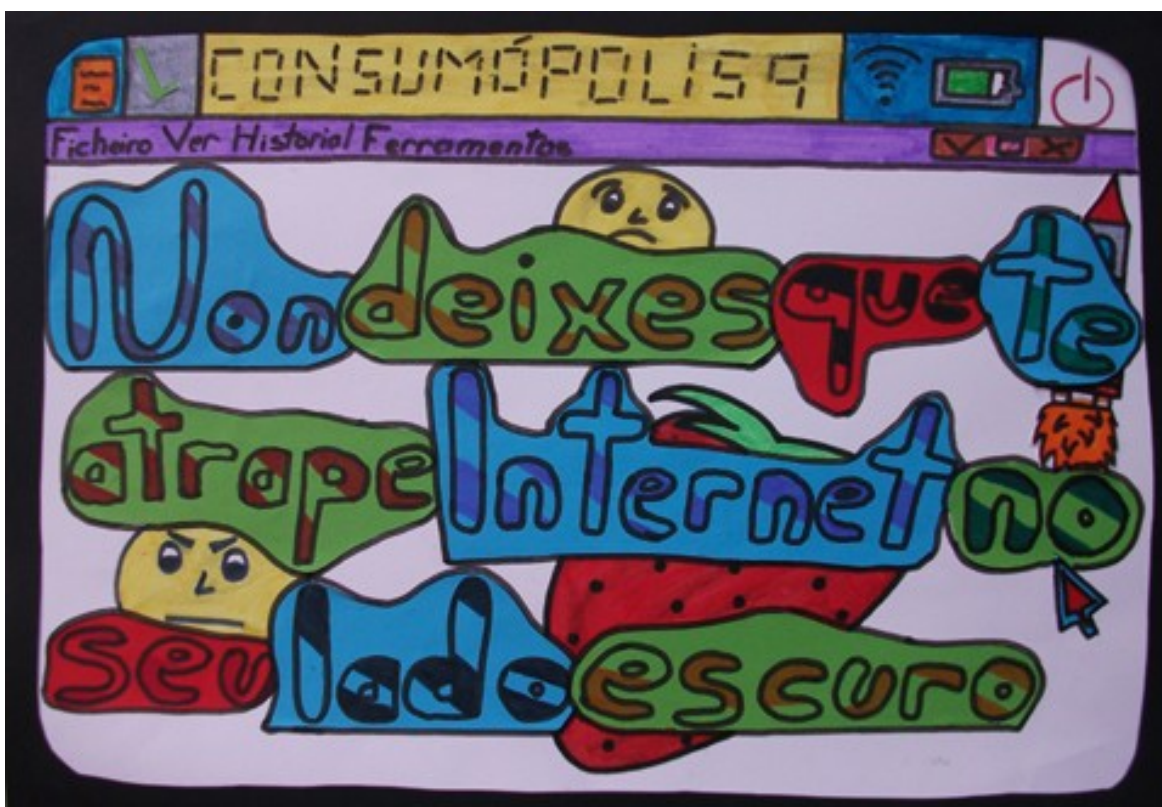 CONSUMÓPOLIS 9
Ficheiro Ver Historial Ferramentas
Non deixes que te
atrape Internet no
seu lado escuro